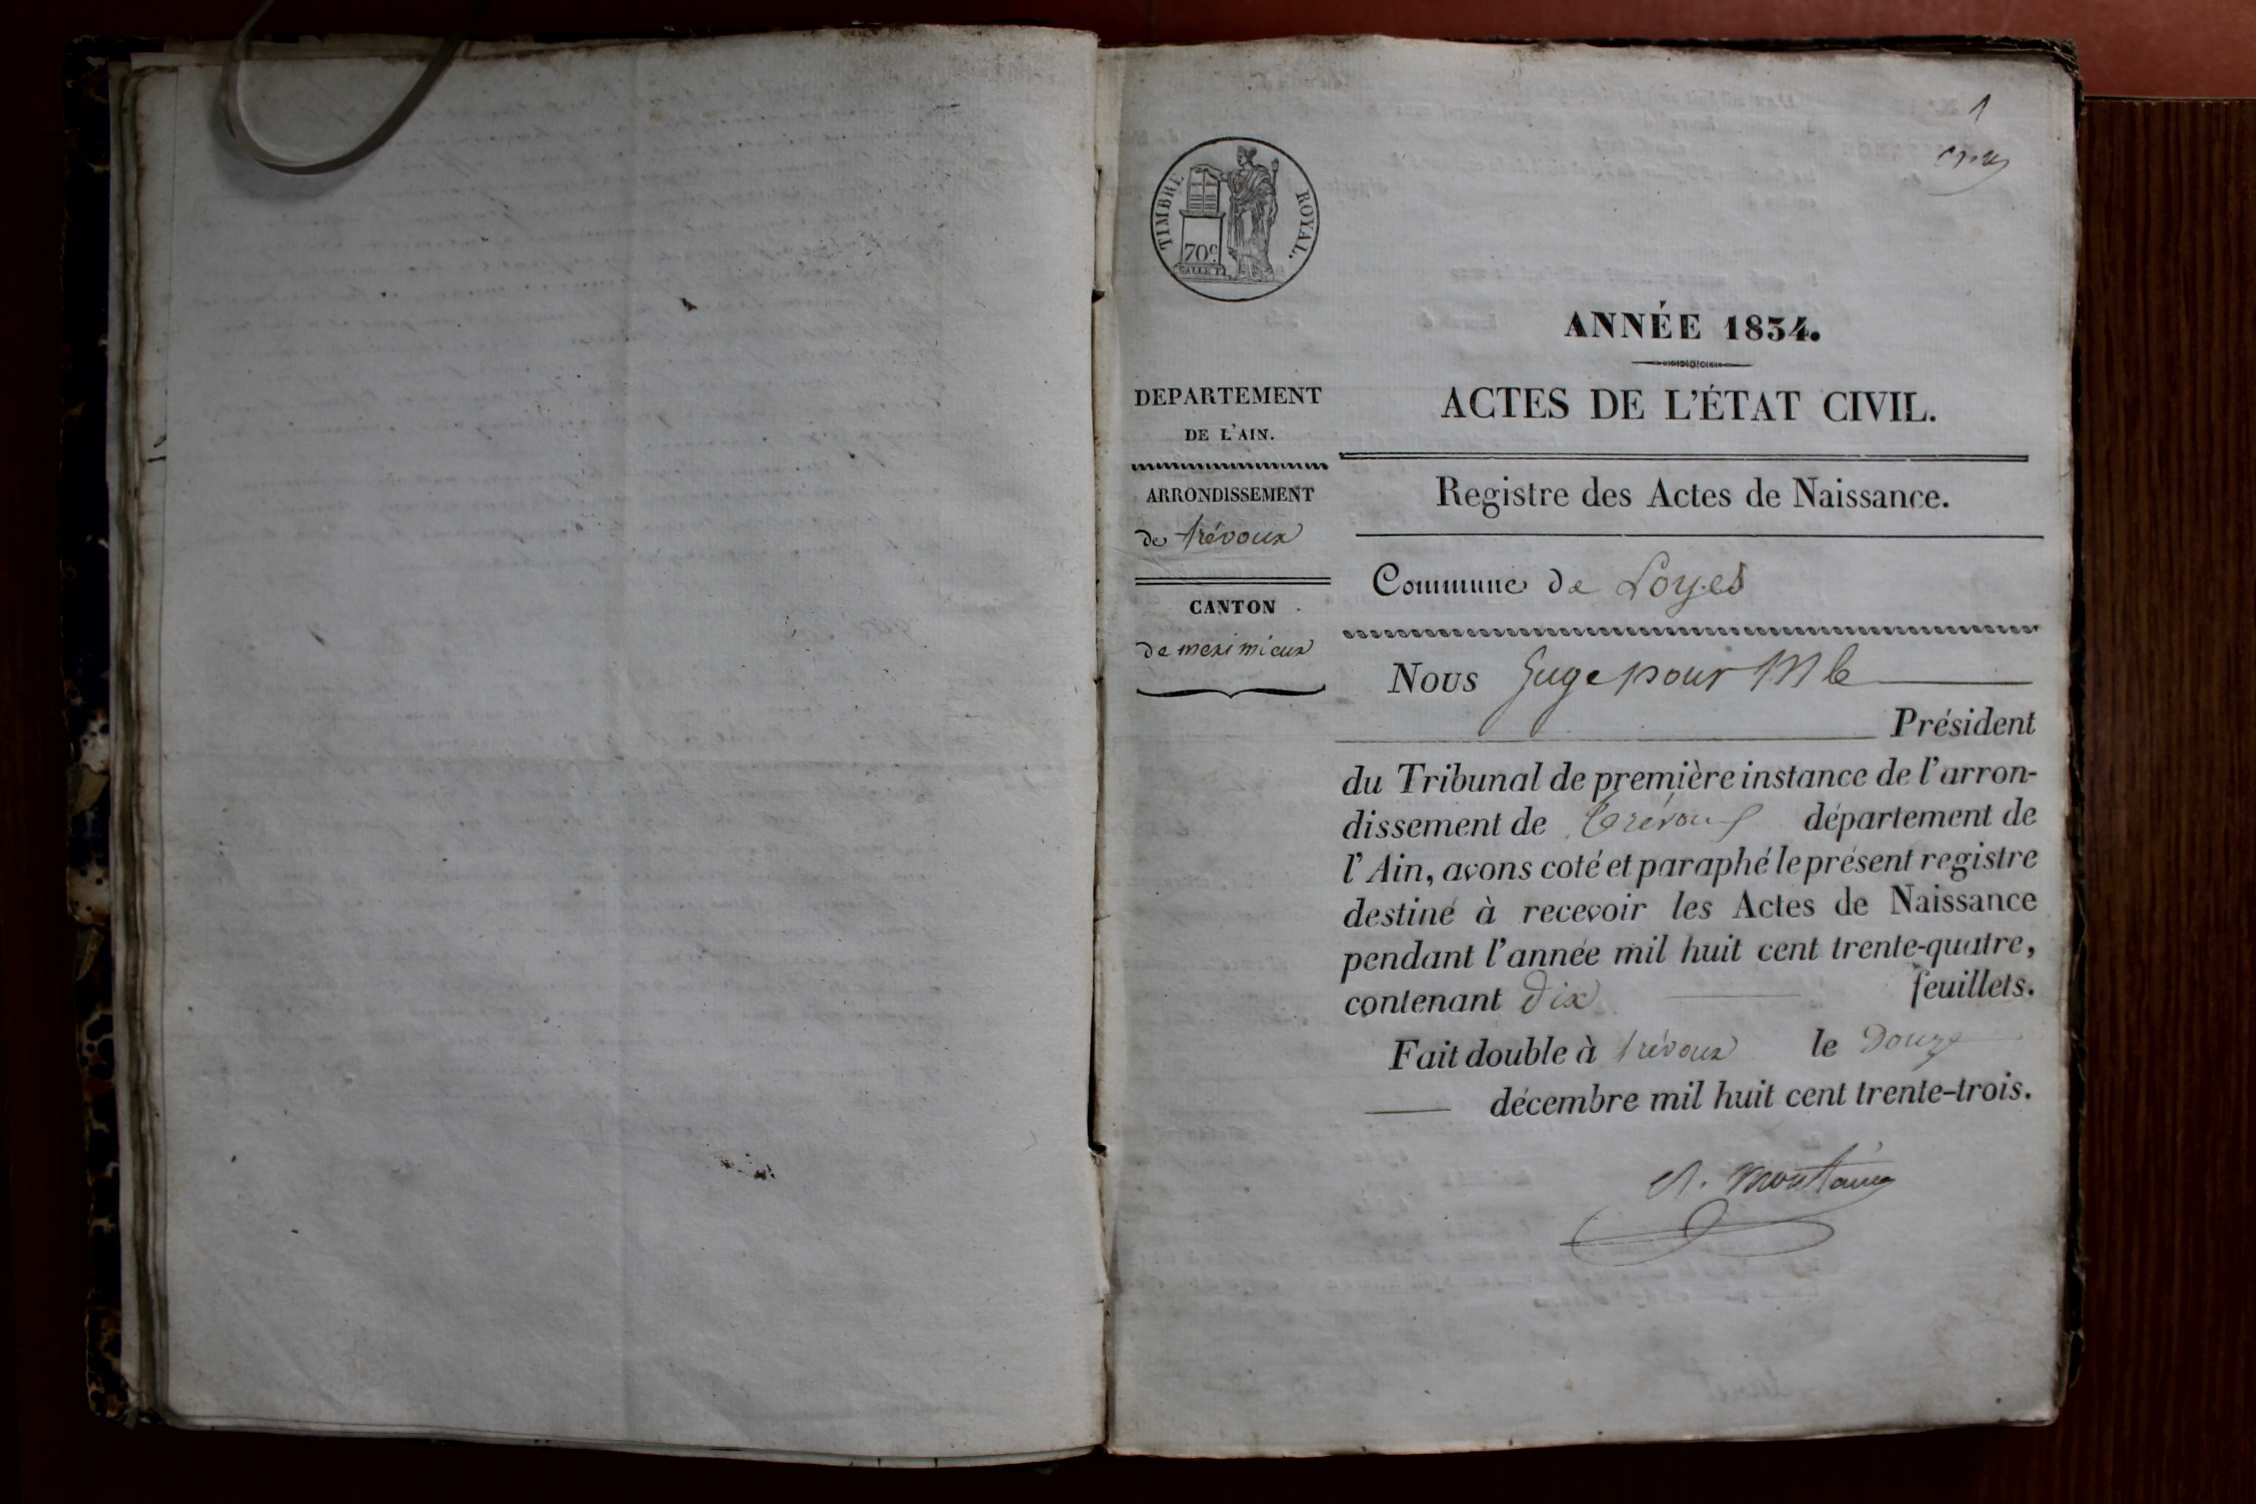 1
TIMBRE ROYAL.
70c.
ANNÉE 1834.
DEPARTEMENT
DE L'AIN.
ARRONDISSEMENT
de trévoux
CANTON
de meximieux
ACTES DE L'ÉTAT CIVIL.
Registre des Actes de Naissance.
Commune de Loyes
Nous Juge pour M le
Président
du Tribunal de première instance de l'arron-
dissement de Trévoux département de
l'Ain, avons coté et paraphé le présent registre
destiné à recevoir les Actes de Naissance
pendant l'année mil huit cent trente-quatre,
contenant dix feuillets.
Fait double à trévoux le Douze
décembre mil huit cent trente-trois.